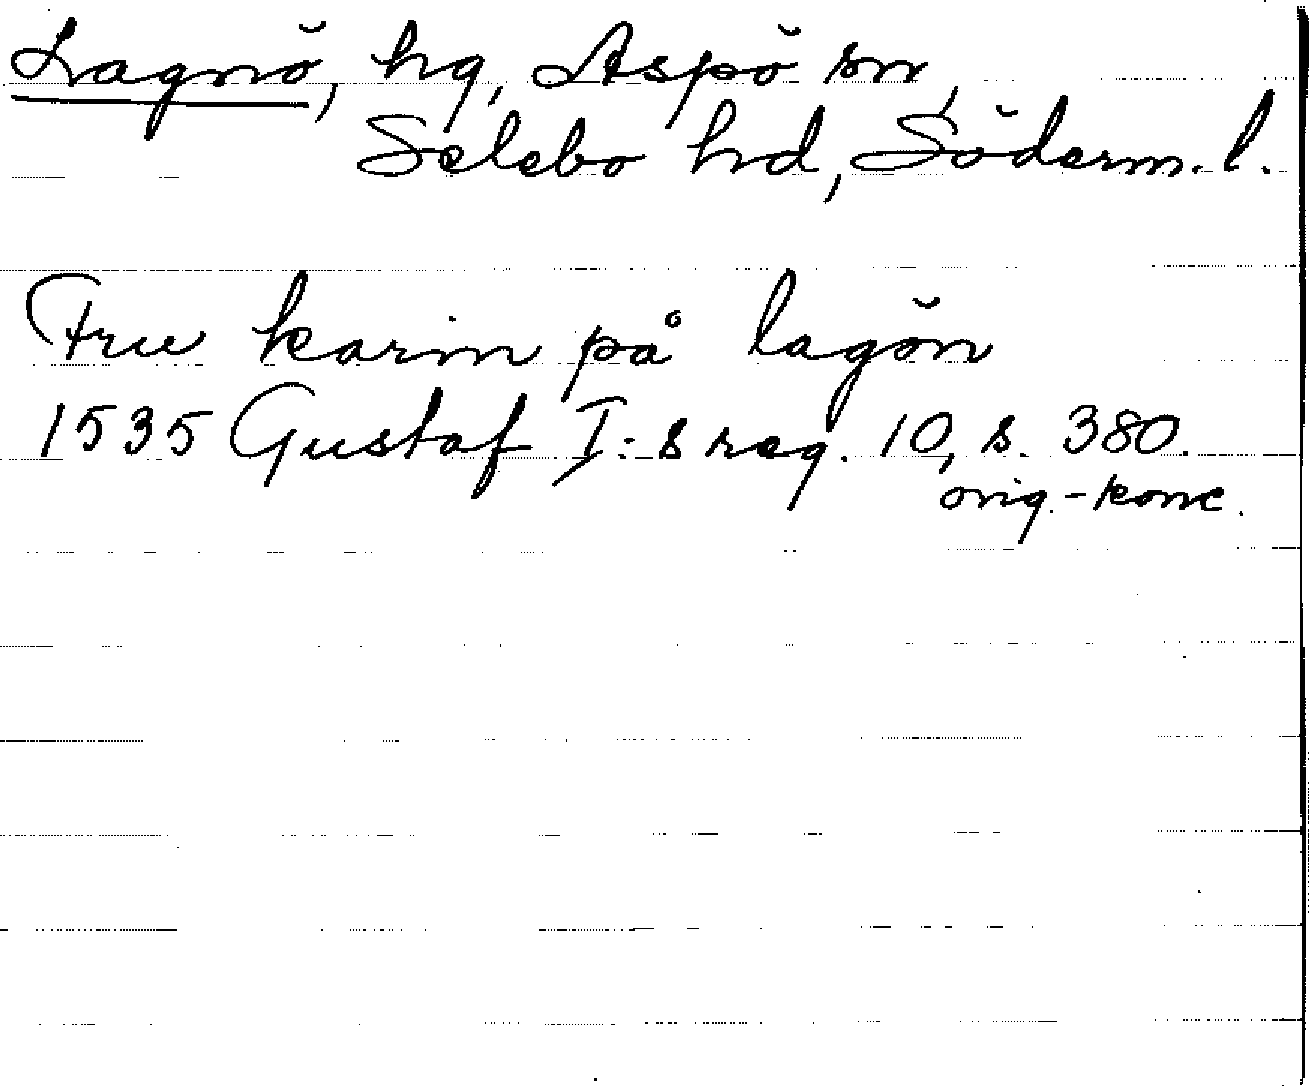 Lagnö, hg, Aspö sn,
Selebo hd, Söderm. l.
Fru karin på lagön
1535 Gustaf I:s reg. 10, s. 380.
orig.-konc.